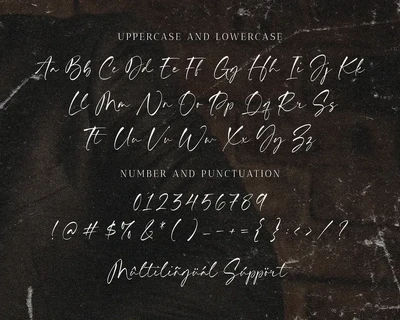 UPPERCASE AND LOWERCASE
Aa Bb Cc Dd Ee Ff Gg Hh Ii Jj Kk
Ll Mm Nn Oo Pp Qq Rr Ss
Tt Uu Vv Ww Xx Yy Zz
NUMBER AND PUNCTUATION
0123456789
! @ # $ % & * ( ) _ - + = { } : < > / ?
Mûltilïñgüál Súppört